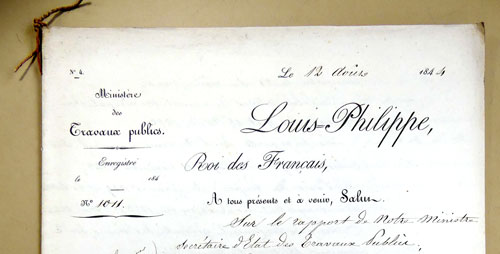 Nº 4.
Le 12 Avril 1844
Ministère
des
Travaux publics.
Louis=Philippe,
Enregistré
Roi des Français,
le 184
Nº 1011.
A tous présents et à venir, Salut.
Sur le rapport de Notre Ministre
Secrétaire d'Etat des Travaux Publics,